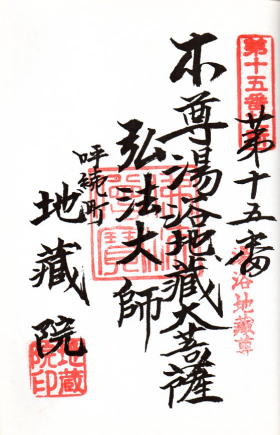 第十五番
第十五番
湯浴地蔵尊
本尊湯浴地蔵大菩薩
弘法大師
呼続町
地蔵院
地蔵院印